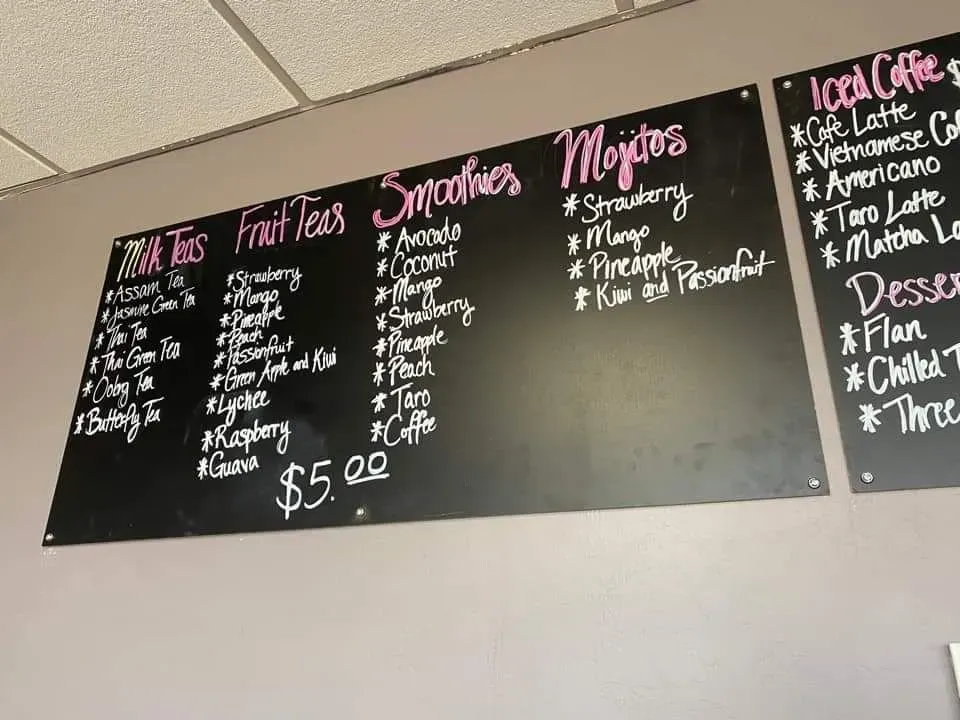 Milk Teas
* Assam Tea
* Jasmine Green Tea
* Thai Tea
* Thai Green Tea
* Oolong Tea
* Butterfly Tea
Fruit Teas
* Strawberry
* Mango
* Pineapple
* Peach
* Passionfruit
* Green Apple and Kiwi
* Lychee
* Raspberry
* Guava
$5.00
Smoothies
* Avocado
* Coconut
* Mango
* Strawberry
* Pineapple
* Peach
* Taro
* Coffee
Mojitos
* Strawberry
* Mango
* Pineapple
* Kiwi and Passionfruit
Iced Coffee $
* Cafe Latte
* Vietnamese Co
* Americano
* Taro Latte
* Matcha La
Desser
* Flan
* Chilled T
* Three